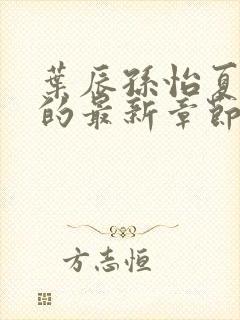 葉辰孫怡夏
的最新章節
方志恒